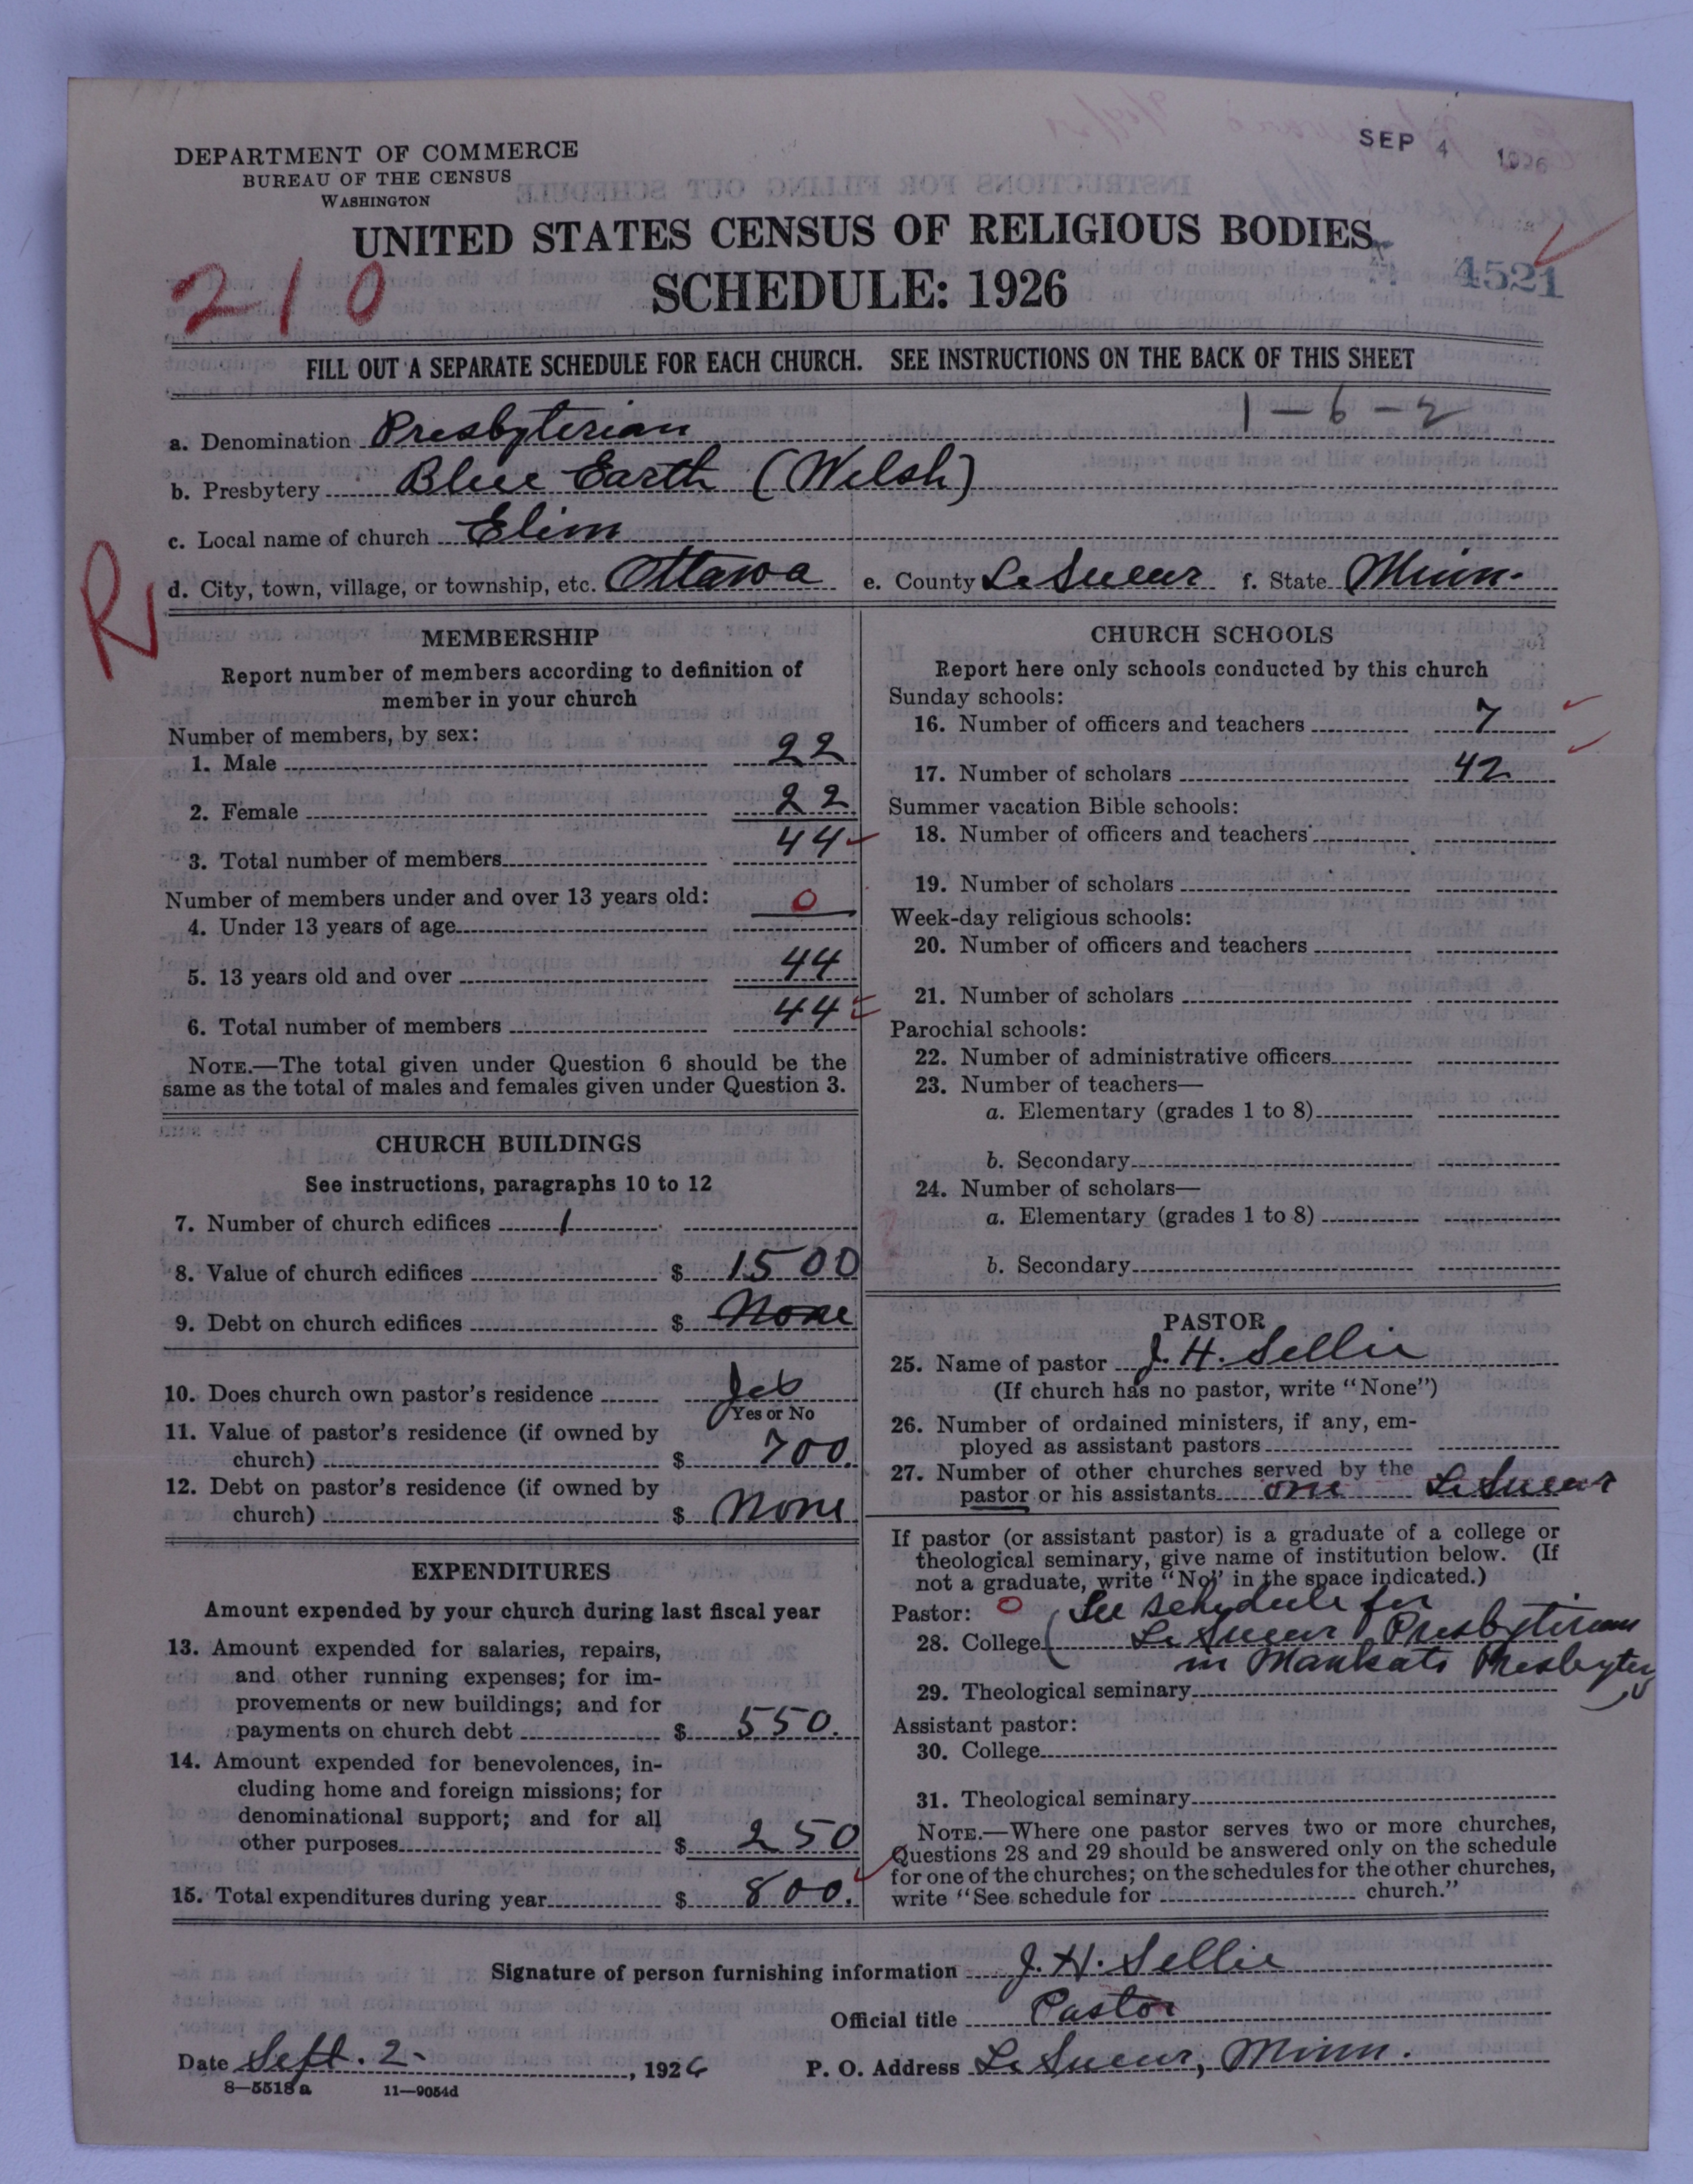 SEP 4 1926
DEPARTMENT OF COMMERCE
BUREAU OF THE CENSUS
WASHINGTON
UNITED STATES CENSUS OF RELIGIOUS BODIES
SCHEDULE: 1926
210
4521
FILL OUT A SEPARATE SCHEDULE FOR EACH CHURCH. SEE INSTRUCTIONS ON THE BACK OF THIS SHEET
1-6-2
a. Denomination Presbyterian
b. Presbytery Blue Earth (Welsh)
c. Local name of church Elim
R
d. City, town, village, or township, etc. Ottawa e. County Le Sueur f. State Minn.
MEMBERSHIP
Report number of members according to definition of
member in your church
Number of members, by sex:
1. Male 22
2. Female 22
3. Total number of members 44
Number of members under and over 13 years old:
4. Under 13 years of age 0
5. 13 years old and over 44
6. Total number of members 44
NOTE.—The total given under Question 6 should be the
same as the total of males and females given under Question 3.
CHURCH BUILDINGS
See instructions, paragraphs 10 to 12
7. Number of church edifices 1
8. Value of church edifices $ 1500
9. Debt on church edifices $ None
10. Does church own pastor's residence Yes
Yes or No
11. Value of pastor's residence (if owned by
church) $ 700.
12. Debt on pastor's residence (if owned by
church) $ None
EXPENDITURES
Amount expended by your church during last fiscal year
13. Amount expended for salaries, repairs,
and other running expenses; for im-
provements or new buildings; and for
payments on church debt $ 550.
14. Amount expended for benevolences, in-
cluding home and foreign missions; for
denominational support; and for all
other purposes $ 250
15. Total expenditures during year $ 800.
CHURCH SCHOOLS
Report here only schools conducted by this church
Sunday schools:
16. Number of officers and teachers 7
17. Number of scholars 42
Summer vacation Bible schools:
18. Number of officers and teachers
19. Number of scholars
Week-day religious schools:
20. Number of officers and teachers
21. Number of scholars
Parochial schools:
22. Number of administrative officers
23. Number of teachers—
a. Elementary (grades 1 to 8)
b. Secondary
24. Number of scholars—
a. Elementary (grades 1 to 8)
b. Secondary
PASTOR
25. Name of pastor J. H. Sellie
(If church has no pastor, write "None")
26. Number of ordained ministers, if any, em-
ployed as assistant pastors
27. Number of other churches served by the
pastor or his assistants one Le Sueur
If pastor (or assistant pastor) is a graduate of a college or
theological seminary, give name of institution below. (If
not a graduate, write "No" in the space indicated.)
Pastor: 0 See schedule for
28. College ( Le Sueur Presbyterian
in Mankato Presbytery
29. Theological seminary
Assistant pastor:
30. College
31. Theological seminary
NOTE.—Where one pastor serves two or more churches,
Questions 28 and 29 should be answered only on the schedule
for one of the churches; on the schedules for the other churches,
write "See schedule for church."
Signature of person furnishing information J. H. Sellie
Official title Pastor
Date Sept. 2 , 1926 P. O. Address Le Sueur, Minn.
8—5518 a 11—9054d